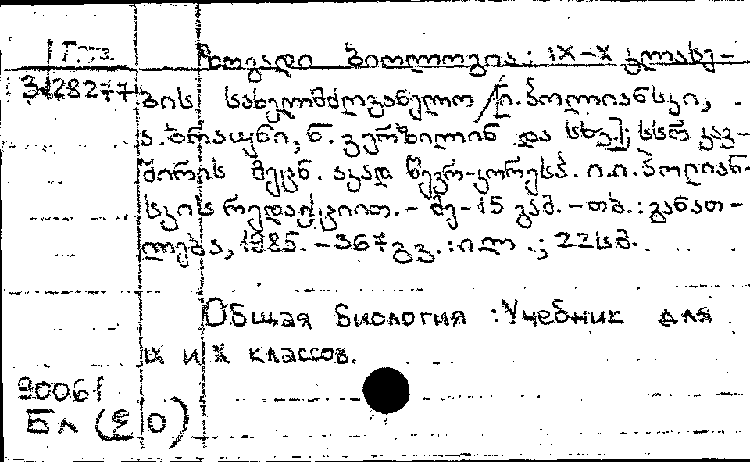 ზოგადი ბიოლოგია : IX-X კლასე-
ბის სახელმძღვანელო /ი. პოლიანსკი,
ა. ბრაუნი, ნ. ვერზილინ და სხვ.]; სსრ კავ-
შირის მეცნ. აკად წევრ-კორესპ. ი.ი. პოლიან-
სკის რედაქციით. - მე-15 გამ. - თბ. : განათ-
ლება, 1985. - 367 გვ. : ილ. ; 22 სმ.
Общая биология : Учебник для
IX и X классов.
90061
Бл (20)